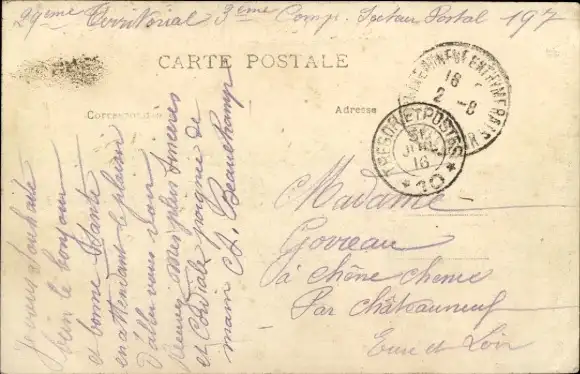 29eme Territorial 3eme Comp. Secteur Postal 197
CARTE POSTALE
Correspondance
Adresse
Je vous souhaite
bien le bonjour
et bonne Santé
en attendant le plaisir
d'aller vous voir
Recevez mes plus sincères
et Cordiale poignée de
main J. Beauchamp
TRESOR ET POSTES
31
JUIL
16
* 20 *
CHATEAUNEUF EN THIMERAIS
18
2 -8
Madame
Govreau
à chêne chenu
Par châteauneuf
Eure et Loir